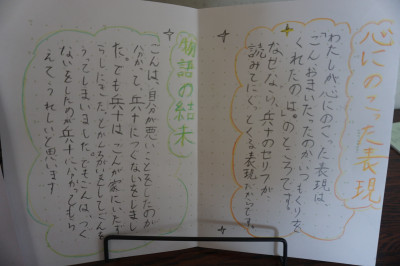 心にのこった表現
わたしが心にのこった表現は、
「ごん、おまいだったのか、いつもくりを
くれたのは。」のところです。
なぜなら、兵十のセリフが、
読みてにく、とくる表現だからです。
物語の結末
ごんは、自分が悪いことをしたのが
分かって、兵十につぐないをしまし
た。でも兵十は、ごんが家にいたず
らしにきた、とかんちがいをしてごんを
うってしまいました。でもごんは、つぐ
ないをしたのが兵十に分かってもら
えて、うれしいと思います。